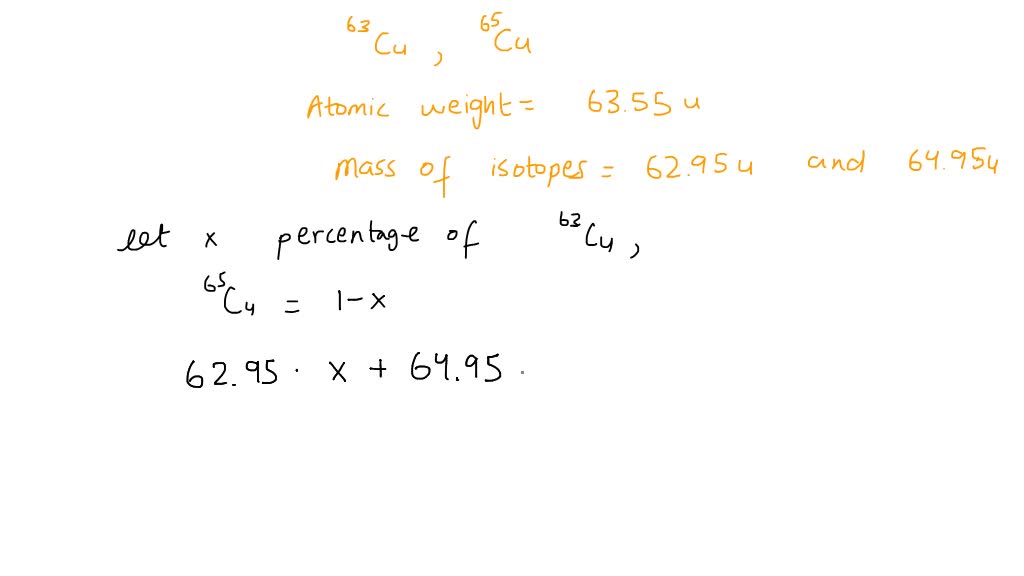 ⁶³Cu , ⁶⁵Cu
Atomic weight = 63.55 u
mass of isotopes = 62.95 u and 64.95u
let x percentage of ⁶³Cu ,
⁶⁵Cu = 1-x
62.95 · x + 64.95 ·